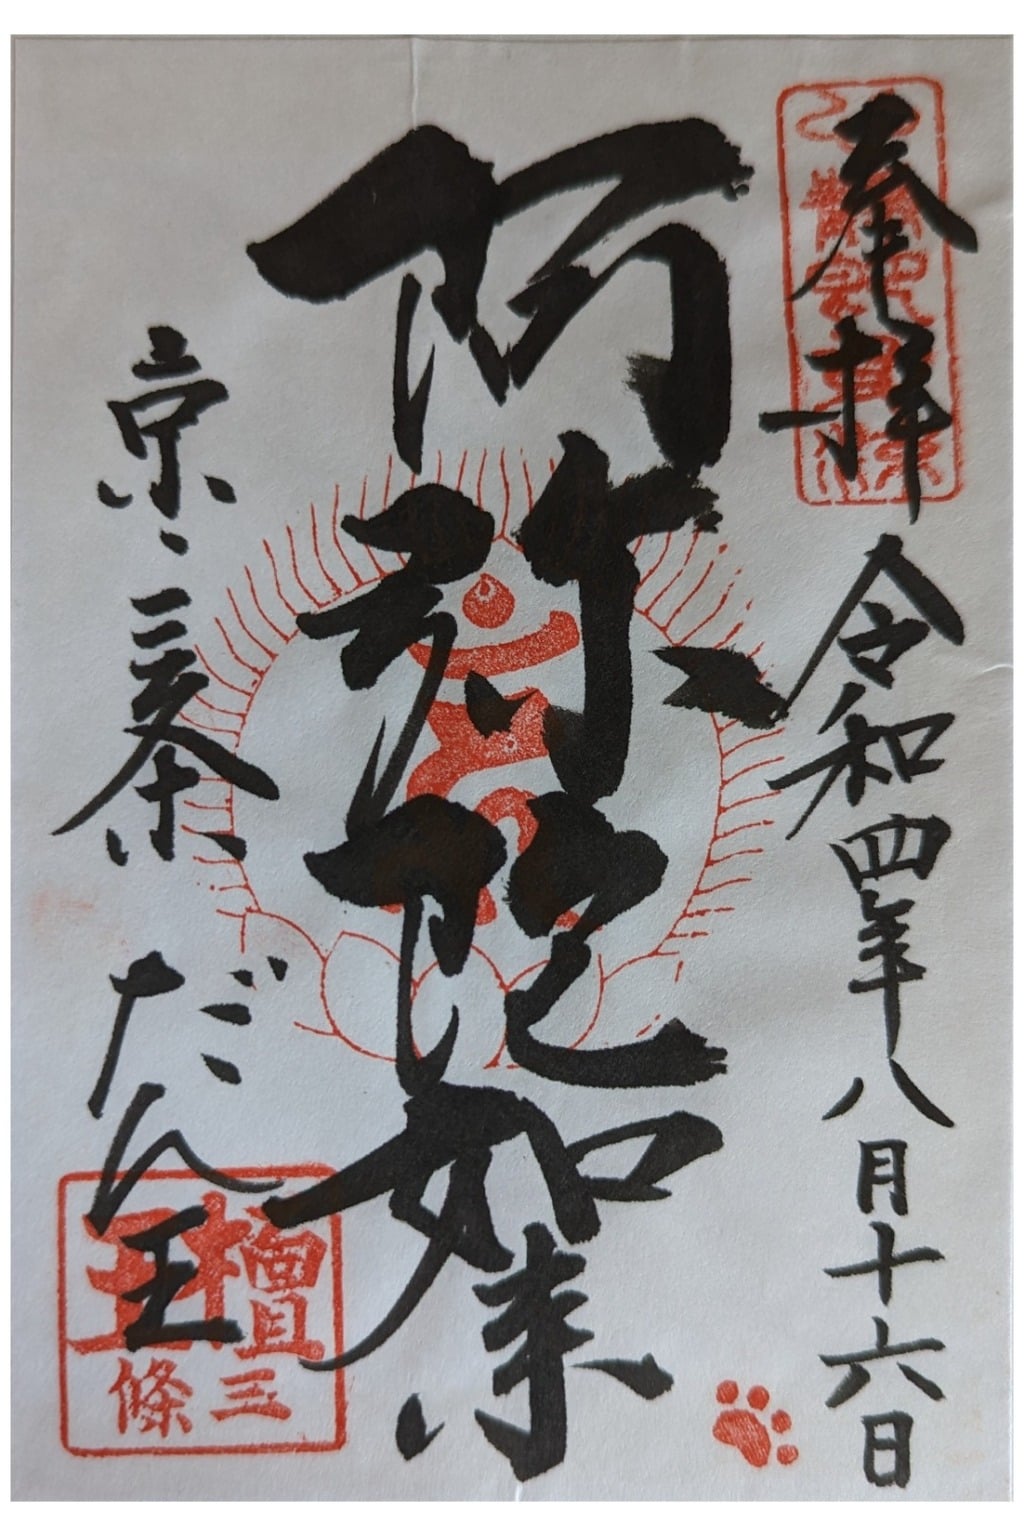 奉拝
令和四年八月十六日
阿弥陀如来
京・三条 だん王
檀王
三條